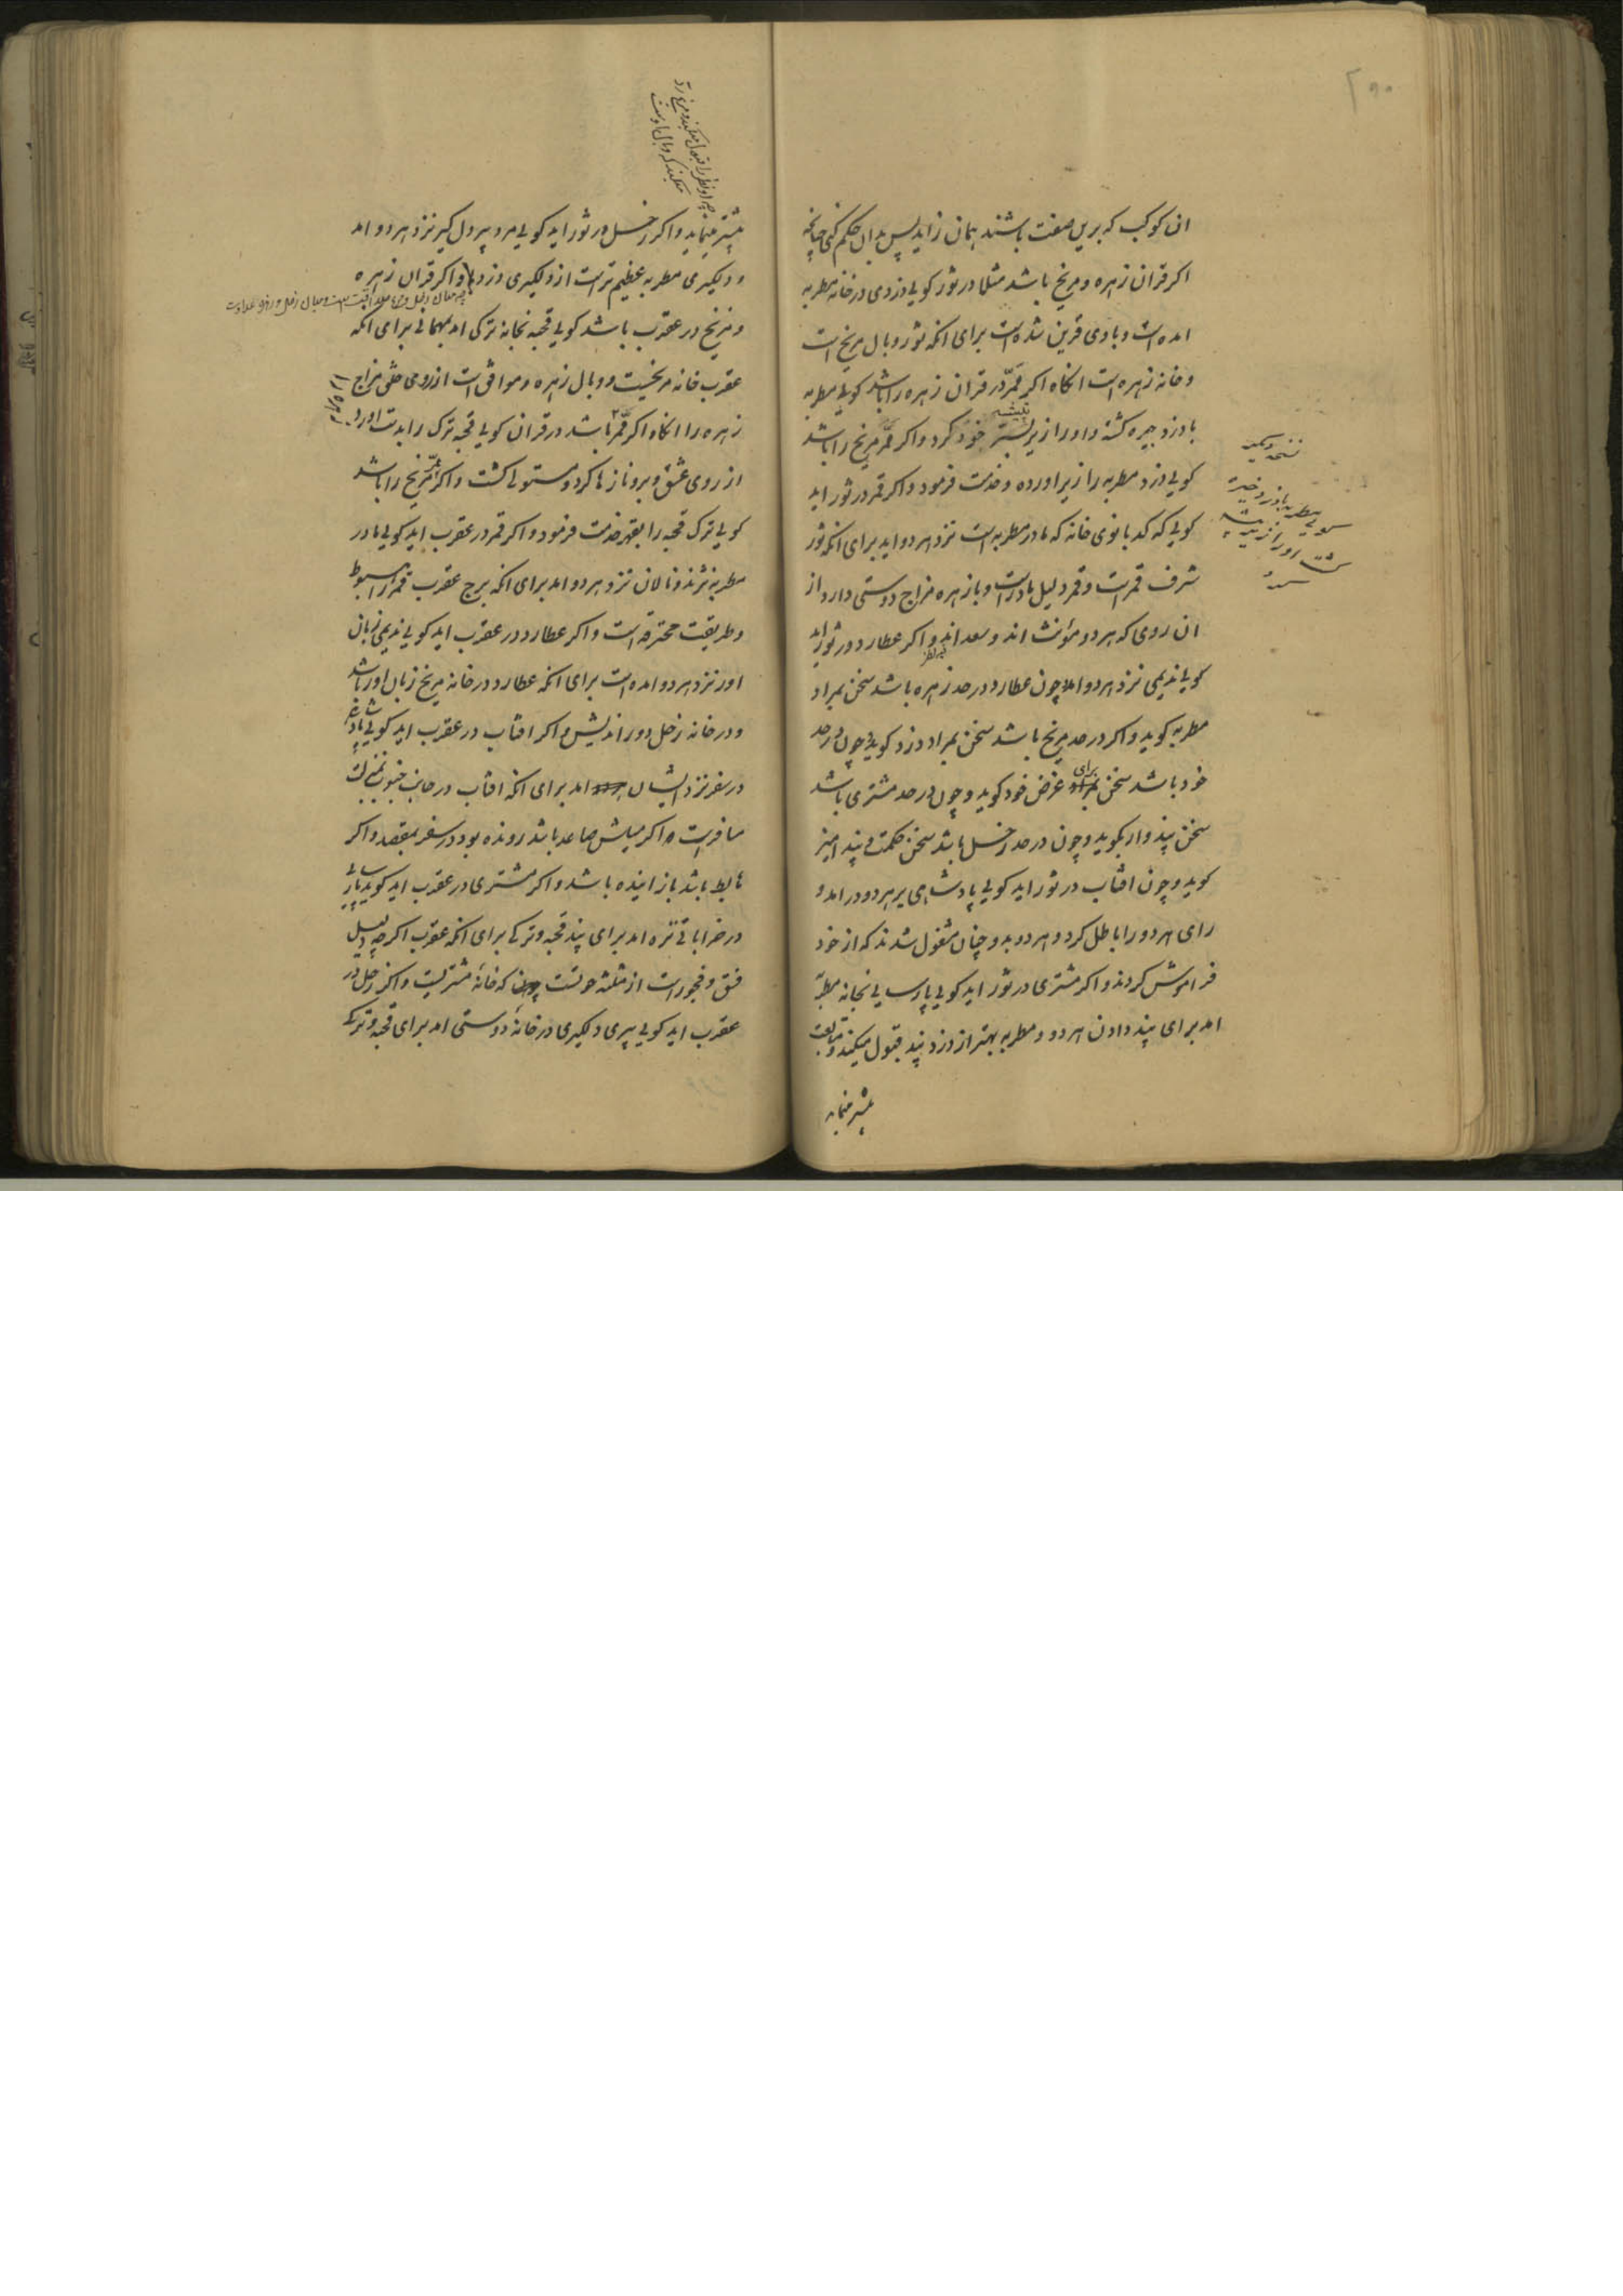 ان کوکب که برین صفت باشند همان زاید پس بدان حکم کنی چنانچه
اکر قران زهره و مریخ باشد مثلا در ثور کویی دزدی در خانه مطربه
امده است و با وی قرین شده است برای انکه ثور وبال مریخ است
و خانه زهره است انکاه اکر ممر در قران زهره را باشد کویی مطربه
با دزد چیره کشته و او را از زیر بستر خود کرد و اکر ممر مریخ را باشد
کویی دزد مطربه را زیر اورده و خدمت فرمود و اکر قمر در ثور اید
کویی که کدبانوی خانه که مادر مطربه است نزد هر دو اید برای انکه ثور
شرف قمر است و قمر دلیل مادر است و با زهره مزاج دوستی دارد از
ان روی که هر دو مؤنث اند و سعد اند و اکر عطارد در ثور اید
کویی ندیمی نزد هر دو امد چون عطارد در حد زهره باشد سخن بمراد
مطربه کوید و اکر در حد مریخ باشد سخن بمراد دزد کوید و چون در حد
خود باشد سخن برای غرض خود کوید و چون در حد مشتری باشد
سخن پند وار بکوید و چون در حد زحل باشد سخن حکمت و پند امیز
کوید و چون افتاب در ثور اید کویی پادشاهی بر هر دو در امد و
رای هر دو را باطل کرد و هر دو بدو چنان مشغول شدند که از خود
فراموش کردند و اکر مشتری در ثور اید کویی پارسایی بخانه مطربه
امد برای پند دادن هر دو و مطربه بهتر از دزد پند قبول میکند و متابعت
بیشتر مینماید
نسخه دیکر
کویی مطربه با دزد خیره
کشت او را از تیشه
چه او نظر را قبول میکند و مریخ رد
میکند که وبال اوست
بیشتر مینماید و اکر زحل در ثور اید کویی مرد پیر دلکیر نزد هر دو امد
و دلکیری مطربه عظیم تر است از دلکیری دزد و اکر قران زهره
و مریخ در عقرب باشد کویی قحبه بخانه ترکی امد بمهمانی برای انکه
عقرب خانه مریخست و وبال زهره و موافق است از روی خنثی مزاج
زهره را انکاه اکر ممر باشد در قران کویی قحبه ترک را بدست اورد
از روی عشق و برو نازها کرد و مستولی کشت و اکر ممر مریخ را باشد
کویی ترک قحبه را بقهر خدمت فرمود و اکر قمر در عقرب اید کویی مادر
مطربه نژند و نالان نزد هر دو امد برای انکه برج عقرب قمر را هبوط
و طریقت محترقه است و اکر عطارد در عقرب اید کویی ندیمی زبان
اور نزد هر دو امده است برای انکه عطارد در خانه مریخ زبان اور باشد
و در خانه زحل دور اندیش و اکر افتاب در عقرب اید کویی پادشاهی
در سفر نزد ایشان امد برای انکه افتاب در جانب جنوب بمنزلت
مسافر است و اکر میلش صاعد باشد رونده بود در سفر بمقصد و اکر
هابط باشد باز اینده باشد و اکر مشتری در عقرب اید کوید پارسایی
در خراباتی تره امد برای پند قحبه و ترکی برای انکه عقرب اکرچه دلیل
فسق و فجور است از مثلثه حوتست که خانهٔ مشتریست و اکر زحل در
عقرب اید کویی پیری دلکیری در خانهٔ دوستی امد برای قحبه و ترکی